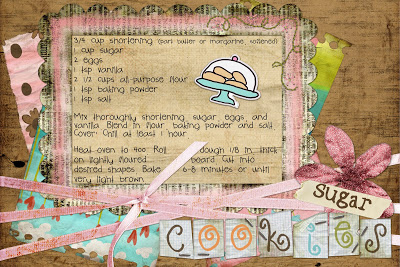 3/4 cup shortening (part butter or margarine, softened)
1 cup sugar
2 eggs
1 tsp vanilla
2 1/2 cups all-purpose flour
1 tsp baking powder
1 tsp salt
Mix thoroughly shortening, sugar, eggs, and
vanilla. Blend in flour, baking powder and salt.
Cover. Chill at least 1 hour.
Heat oven to 400. Roll dough 1/8 in. thick
on lightly floured board. Cut into
desired shapes. Bake 6-8 minutes or until
very light brown.
sugar
cookies